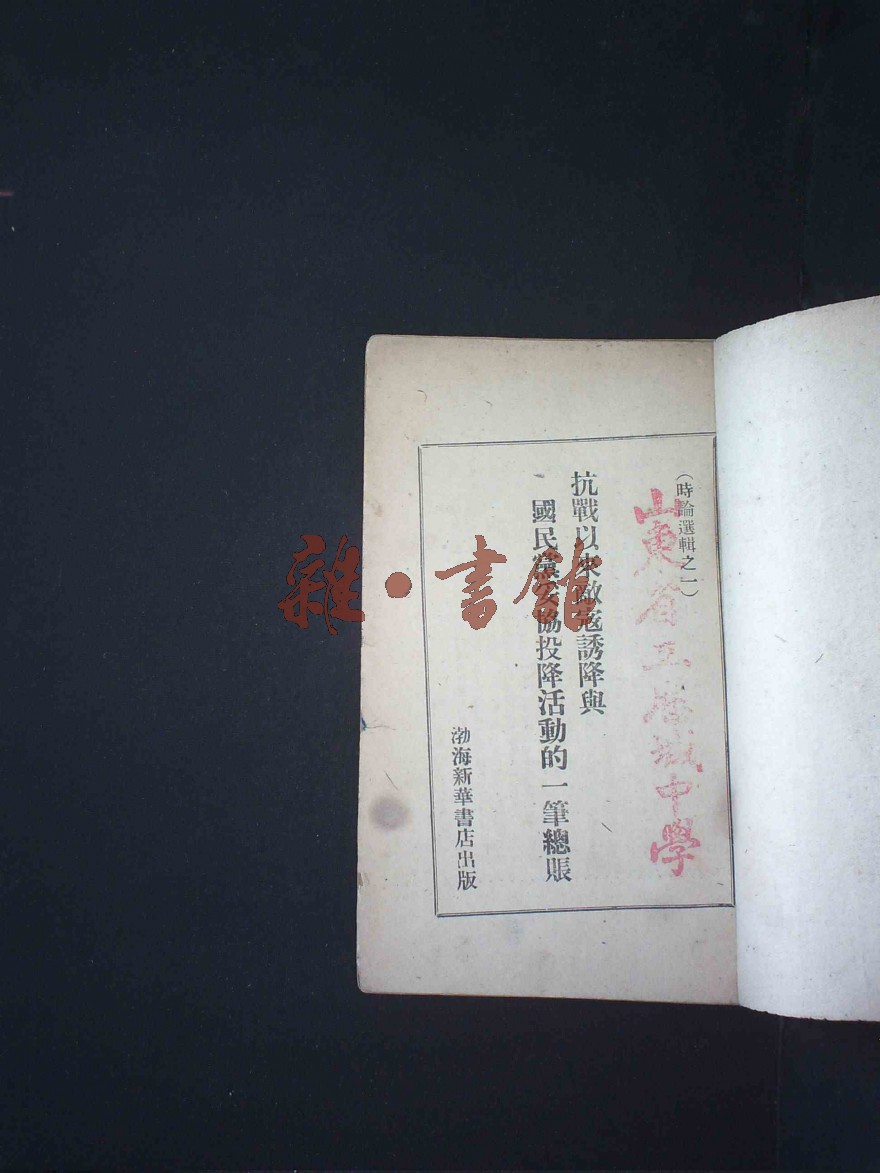 (時論選輯之一)
抗戰以來敵寇誘降與
國民黨妥協投降活動的一筆總賬
渤海新華書店出版
山東省工
城中學
雜·書館